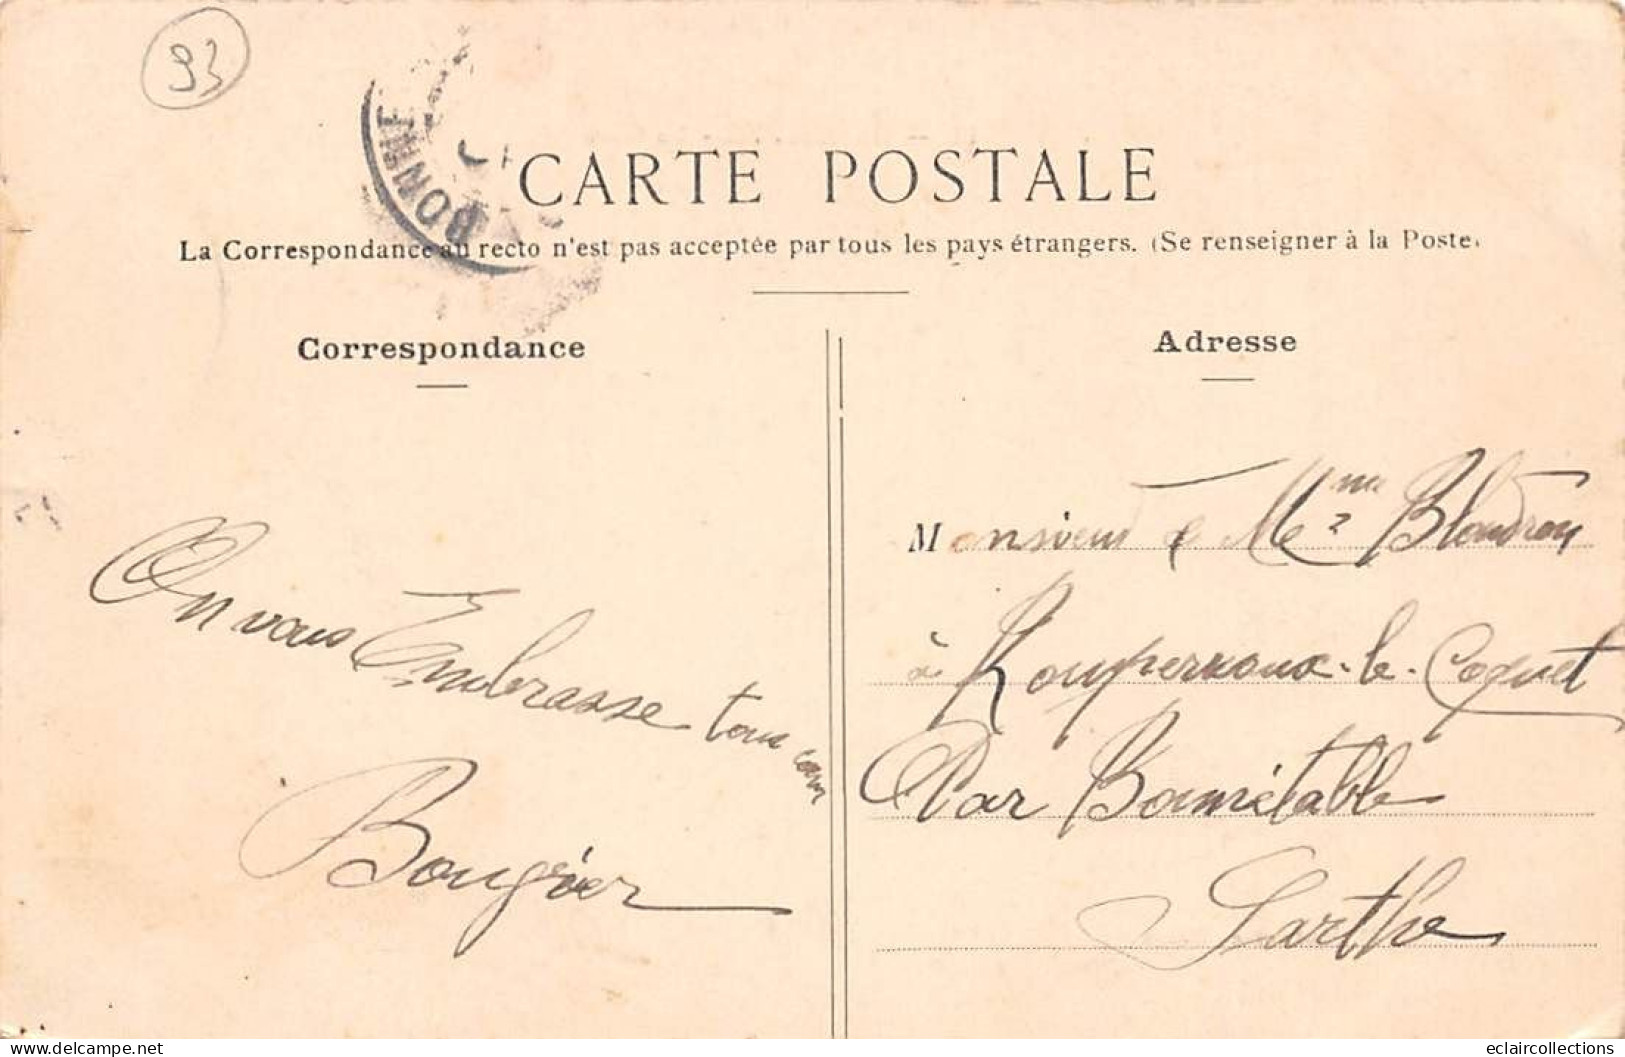 93
BONNÉ
CARTE POSTALE
La Correspondance au recto n'est pas acceptée par tous les pays étrangers. (Se renseigner à la Poste)
Correspondance
On vous Embrasse tous
Bougier
Adresse
Monsieur & Mme
à Rouperroux-le-Coquet
Par Bonnétable
Sarthe
eclaircollections